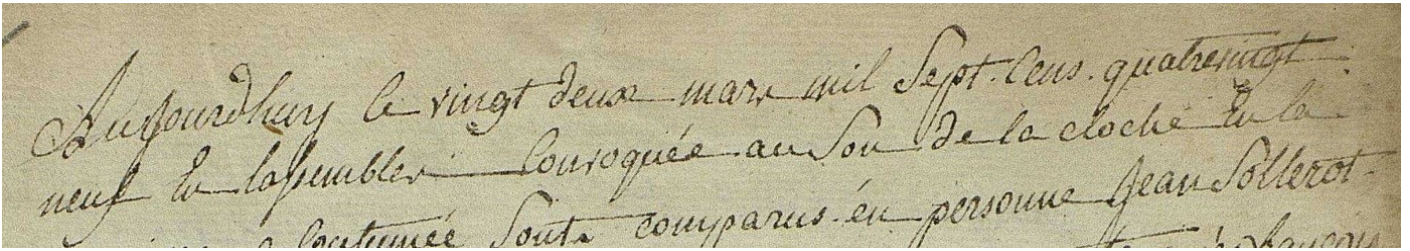 Aujourdhuy le vingt deux mars mil Sept. Cens. quatrevingt
neuf En lassemblée Convoquée au Son de la cloche En la
Coutumée Sont comparus en personne Jean Sollerot